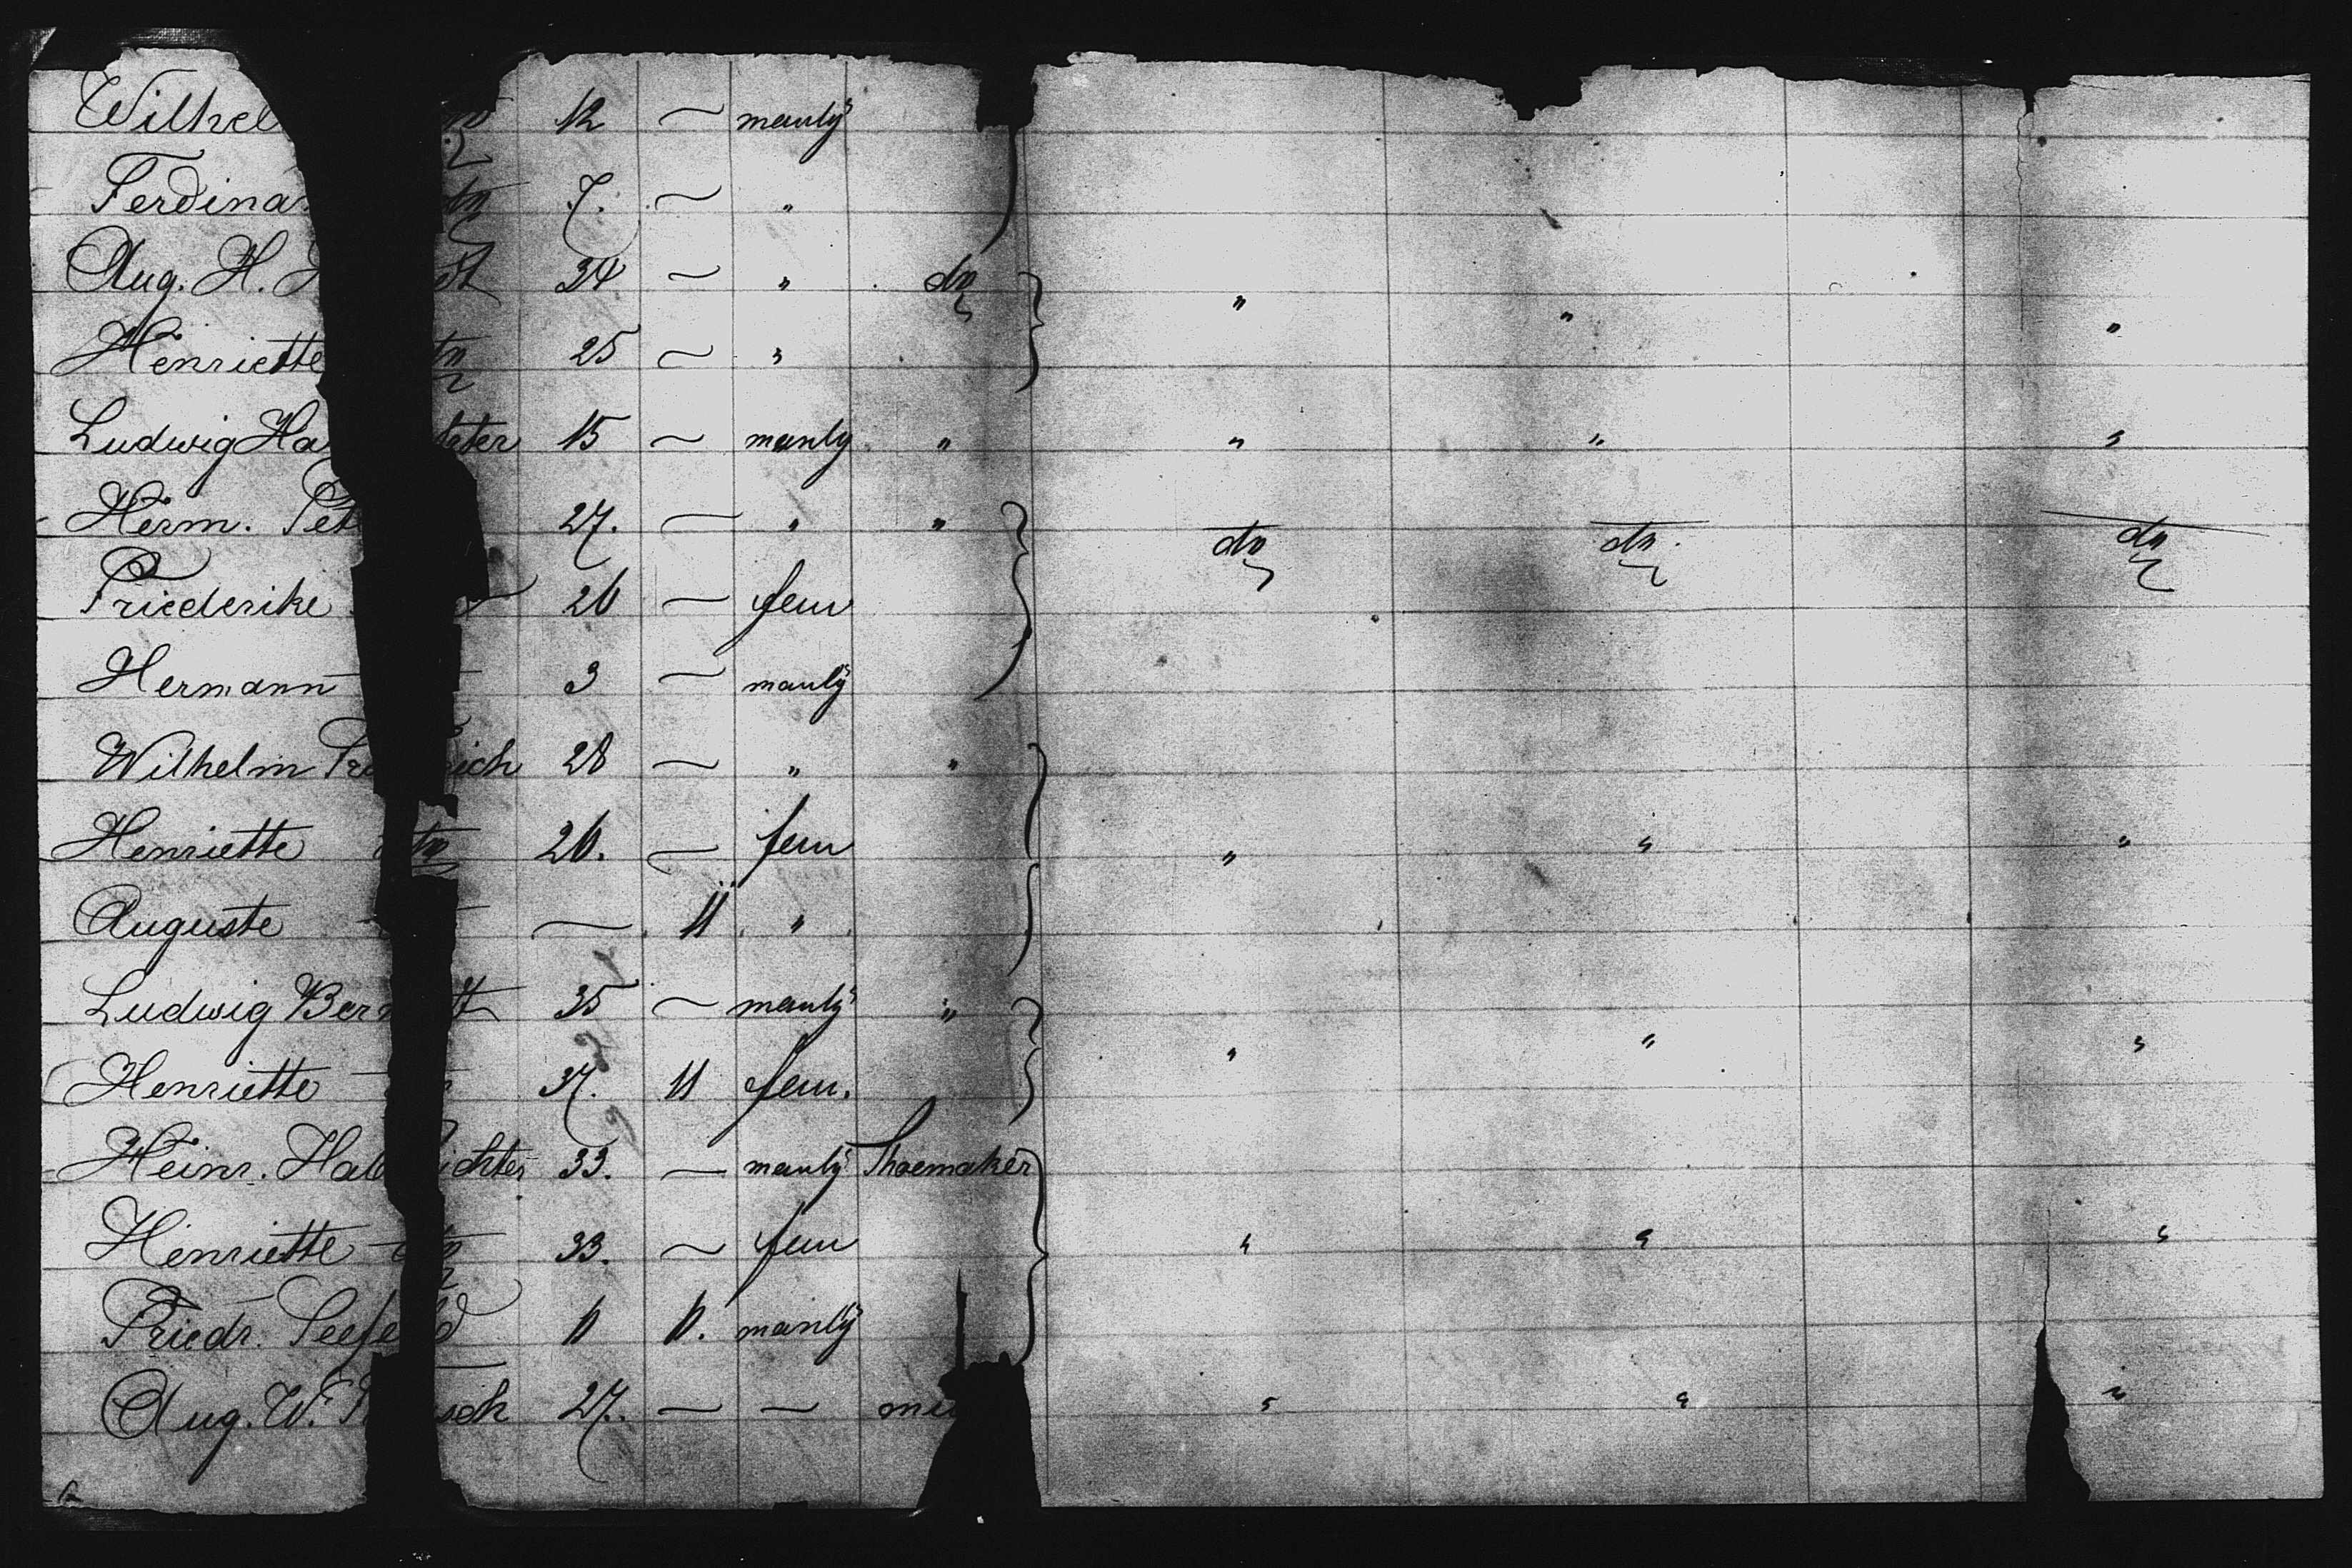 Wilhel do 12 — manly
Ferdina do 7. — "
Aug. H. dt 34 — " do " " "
Henriette do 25 — "
Ludwig Ha hter 15 — manly " " " "
Herm. Pet 27. — " " do do do
Friederike 26 — fem
Hermann 3 — manly
Wilhelm Fr ich 28 — " "
Henriette do 26. — fem " " "
Auguste — 11 "
Ludwig Ber dt 35 — manly " " " "
Henriette 37. 11 fem.
Heinr. Hab ichter 33. — manly Shoemaker
Henriette do 33. — fem " " "
Friedr. Seefeld 6 6. manly
Aug. W. sch 27. — — mi " " "